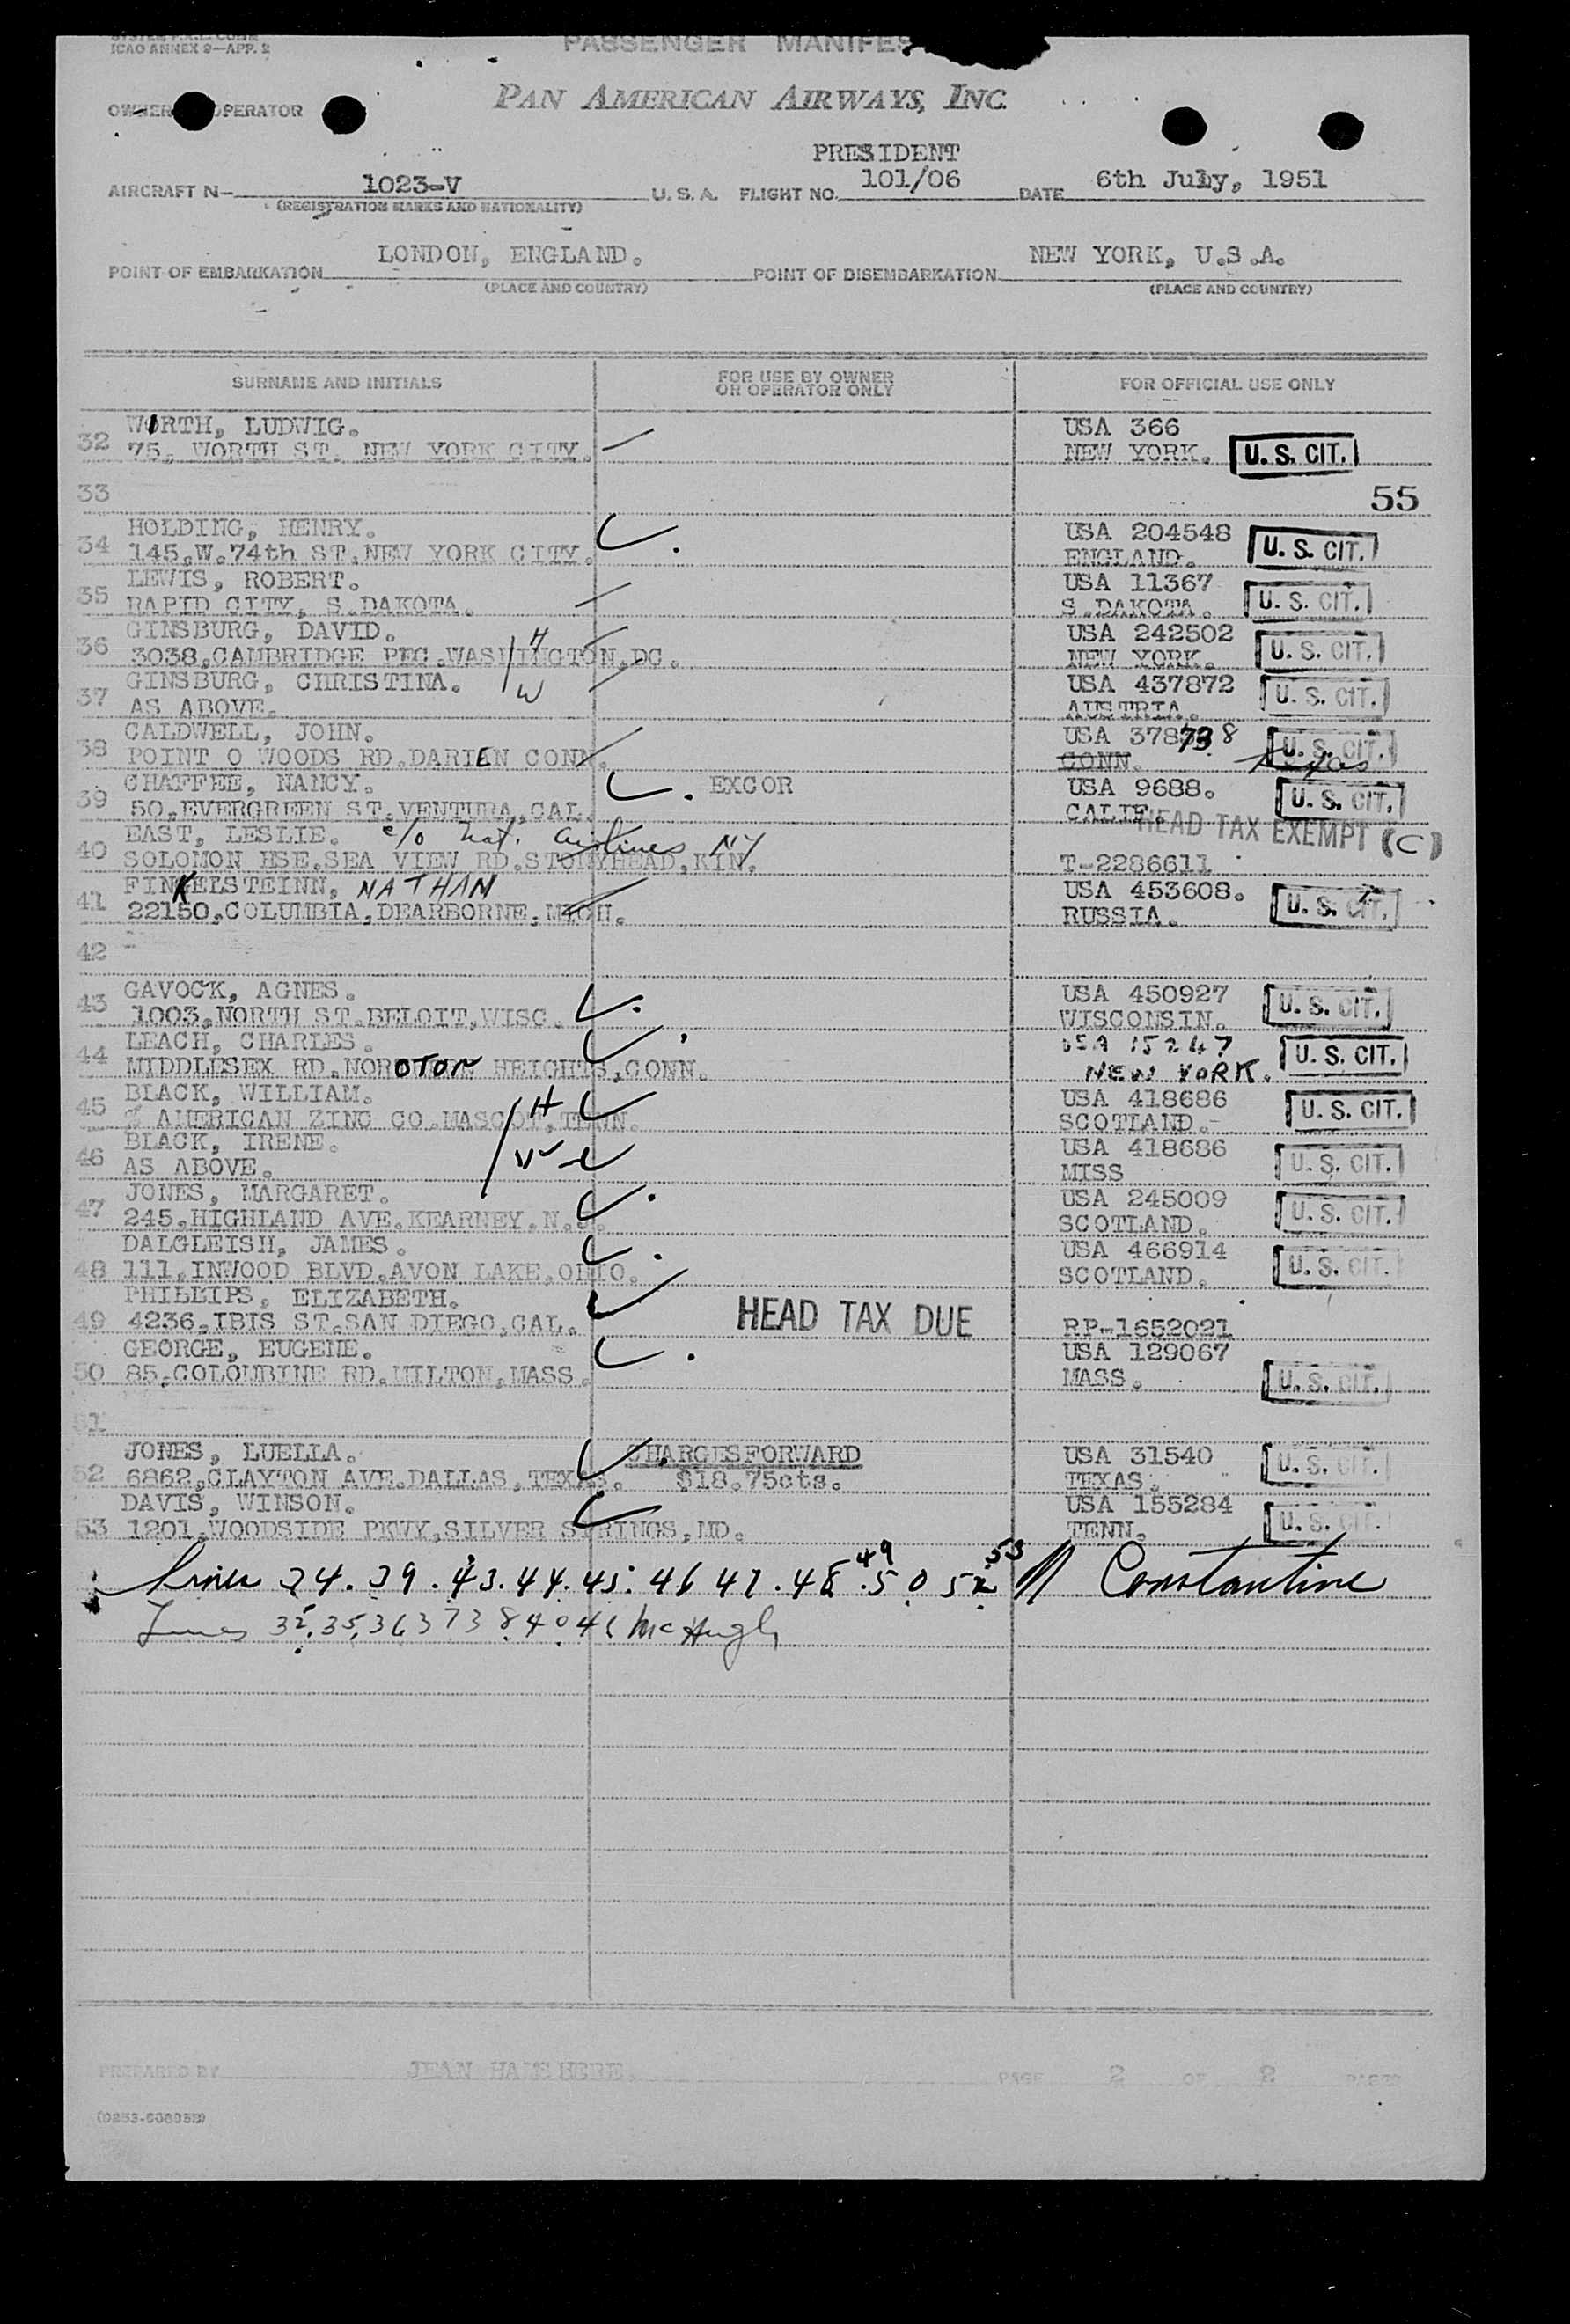 ICAO ANNEX 9—APP. 2
PASSENGER MANIFES
PAN AMERICAN AIRWAYS, INC.
OWNER OPERATOR
PRESIDENT
AIRCRAFT N— 1023-V U. S. A. FLIGHT NO. 101/06 DATE 6th July, 1951
(REGISTRATION MARKS AND NATIONALITY)
POINT OF EMBARKATION LONDON, ENGLAND. POINT OF DISEMBARKATION NEW YORK, U.S.A.
(PLACE AND COUNTRY) (PLACE AND COUNTRY)
SURNAME AND INITIALS FOR USE BY OWNER OR OPERATOR ONLY FOR OFFICIAL USE ONLY
WORTH, LUDWIG. USA 366
32 75, WORTH ST. NEW YORK CITY. NEW YORK. U. S. CIT.
33 55
HOLDING, HENRY. USA 204548
34 145.W.74th ST.NEW YORK CITY. ENGLAND. U. S. CIT.
LEWIS, ROBERT. USA 11367
35 RAPID CITY, S.DAKOTA. S.DAKOTA. U. S. CIT.
GINSBURG, DAVID. H USA 242502
36 3038.CAMBRIDGE PEC.WASHINGTON,DC. NEW YORK. U. S. CIT.
GINSBURG, CHRISTINA. W USA 437872
37 AS ABOVE. AUSTRIA. U. S. CIT.
CALDWELL, JOHN. USA 378738
38 POINT O WOODS RD.DARIEN CONN. CONN. Texas U. S. CIT.
CHAFFEE, NANCY. EXCOR USA 9688.
39 50.EVERGREEN ST.VENTURA,CAL. CALIF. U. S. CIT.
EAST, LESLIE. c/o Nat. Airlines NY HEAD TAX EXEMPT (C)
40 SOLOMON HSE.SEA VIEW RD.STONYHEAD,KIN. T-2286611
FINKELSTEINN, NATHAN USA 453608.
41 22150.COLUMBIA,DEARBORNE.MICH. RUSSIA. U. S. CIT.
42
GAVOCK, AGNES. USA 450927
43 1003.NORTH ST.BELOIT,WISC. WISCONSIN. U. S. CIT.
LEACH, CHARLES. USA 15247
44 MIDDLESEX RD.NOROTON HEIGHTS,CONN. NEW YORK. U. S. CIT.
BLACK, WILLIAM. H USA 418686
45 AMERICAN ZINC CO.MASCOT,TENN. SCOTLAND. U. S. CIT.
BLACK, IRENE. W USA 418686
46 AS ABOVE. MISS U. S. CIT.
JONES, MARGARET. USA 245009
47 245.HIGHLAND AVE.KEARNEY.N.J. SCOTLAND. U. S. CIT.
DALGLEISH, JAMES. USA 466914
48 111.INWOOD BLVD.AVON LAKE,OHIO. SCOTLAND. U. S. CIT.
PHILLIPS, ELIZABETH. HEAD TAX DUE
49 4236.IBIS ST.SAN DIEGO,CAL. RP-1652021
GEORGE, EUGENE. USA 129067
50 85.COLOMBINE RD.MILTON,MASS. MASS. U. S. CIT.
51
JONES, LUELLA. CHARGES FORWARD USA 31540
52 6862.CLAYTON AVE.DALLAS,TEXAS. $18.75cts. TEXAS. U. S. CIT.
DAVIS, WINSON. USA 155284
53 1201.WOODSIDE PKWY,SILVER SPRINGS,MD. TENN. U. S. CIT.
Lines 34. 39. 43. 44. 45. 46 47. 48 49 50 52 53 Constantine
Lines 32. 35. 36 37 38 40 41 McHugh
PREPARED BY JEAN PAGE 2 OF 2 PAGES